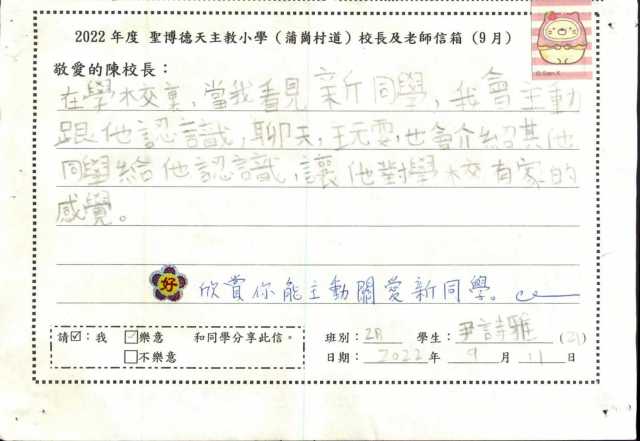 2022 年度 聖博德天主教小學（蒲崗村道）校長及老師信箱（9 月）
敬愛的陳校長：
在學校裏，當我看見新同學，我會主動
跟他認識，聊天，玩耍，也會介紹其他
同學給他認識，讓他對學校有家的
感覺。
好 欣賞你能主動關愛新同學。
請☑：我 ☑樂意 和同學分享此信。
☐不樂意
班別：2B 學生：尹詩雅 (21)
日期：2022 年 9 月 11 日